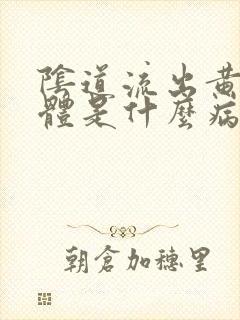 陰道流出黃
體是什麼病
朝倉加穗里